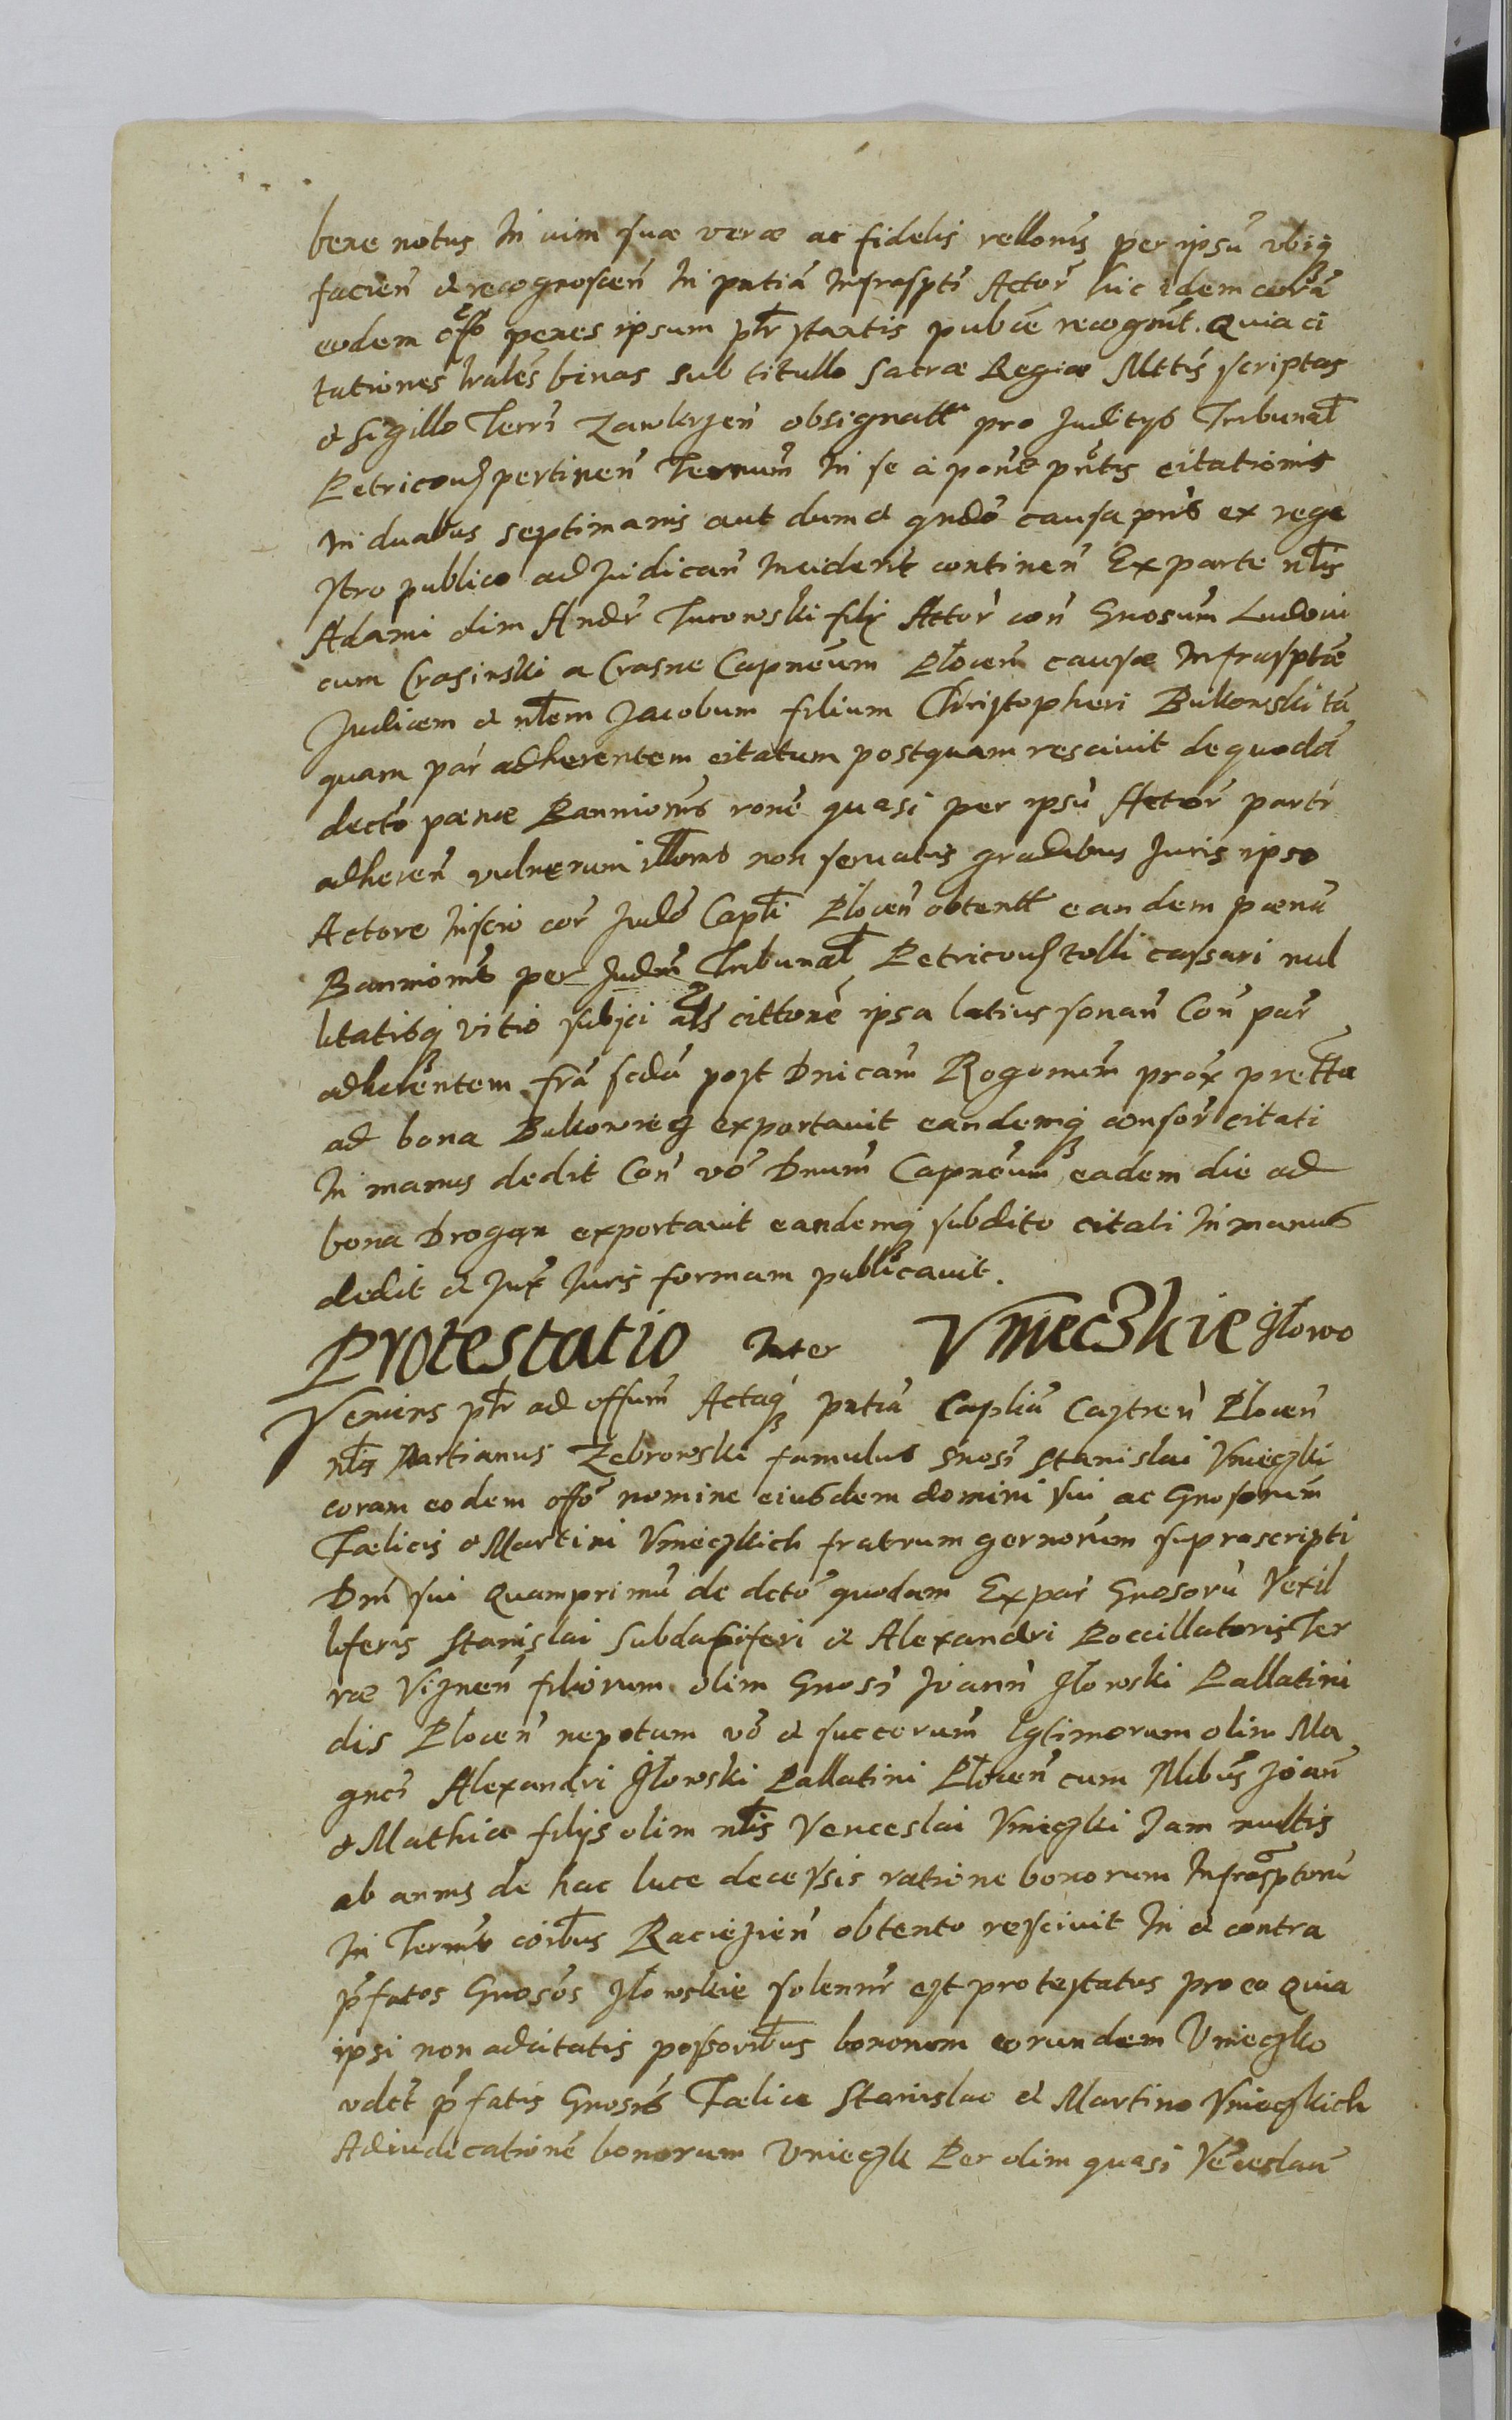 bene notus In vim suæ veræ ac fidelis rellonis per ipsū ubiq
facien̄ & recognoscen̄ In pntiā Infrascpti Actor̄ hic idem corā
eodem offo penes ipsum płr ʃtantis pubce recognit. Quia ci
tationes lrales binas sub titullo Sacræ Regiæ Mttis scriptas
& sigillo Terr̄i Zawkrzen̄ obsignatt pro Juditys Tribunał
Petricoviʒ pertinen̄ Termum̄ In se a pone pntis citationis
In duabus septimanis aut dum & qndo causa pns ex rege
stro publico ad Judican̄ Inciderit continen̄ Ex parte nłis
Adami olim Andr̄ Turowski fily Actor̄ con̄ Gnosum Ludovi
cum Crasinski a Crasne Capneum Płocen̄ causæ Infrasptæ
Judicem & nłem Jacobum filium Christopheri Bulkowski tā
quam par̄ adherentem citatum postquam rescivit de quodā
decto pænæ Bannionis rone quasi per ipsū Actor̄ parti
adheren̄ vulnerum illorio non servatis gradibus Juris ipso
Actore Inscio cor̄ Judo Capłi Płocen̄ obtentt eandem pænā
Bannionis per Judm̄ Tribunał Petricoviʒ tolli cassari nul
litatisq vitio subjci als cittone ipsa latius sonan̄ Con̄ par̄
adherentem fra scda post Dnicam̄ Rogonum̄ prox̄ pretta
ad bona Bulkowieʒ exportavit eandemq consor̄ citati
In manus dedit Con̄ vo Dnum̄ Capneum̄ eadem die ad
bona Drogan exportavit eandemq subdito citati In manus
dedit & Jux̄ Juris formam publicavit.
Protestatio Inter Vnieczkie Jłowo
Veniens płr ad offum̄ Actaq pntiā Capliā Castren̄ Płocen̄
nłis Martianus Zebrowski famulus Gnosi Stanislai Vnieczki
coram eodem offo nomine eiusdem domini sui ac Gnosorum̄
Fælicis & Martini Vnieczkich fratrum gernorum suprascripti
Dni sui Quamprimū de dcto quodam Expar̄ Gnosorū Vexil
liferis Stanislai Subdapiferi & Alexandri Poccillatoris Ter
ræ Viʒnen̄ filiorum olim Gnosi Joann̄ Jłowski Pallatini
dis Płocen̄ nepotum vo & succorum̄ lgtimorum olim Ma
gnci Alexandri Jłowski Pallatini Płocen̄ cum Nłibus Joan̄
& Mathia filys olim nłis Venceslai Vnieczki Jam multis
ab annis de hac luce decessis ratione bonorum Infrasptoru
In Termis coibus Raciezien̄ obtento rescivit In & contra
pfatos Gnosos Jłowskie solennr̄ est protestatus pro eo quia
ipsi non adcitatis possoribus bonorum eorundem Vnieczko
vdct pfatis Gnosis Fælice Stanislao & Martino Vnieczkich
Adiudicatione bonorum Vnieczk Per olim quasi Venceslau